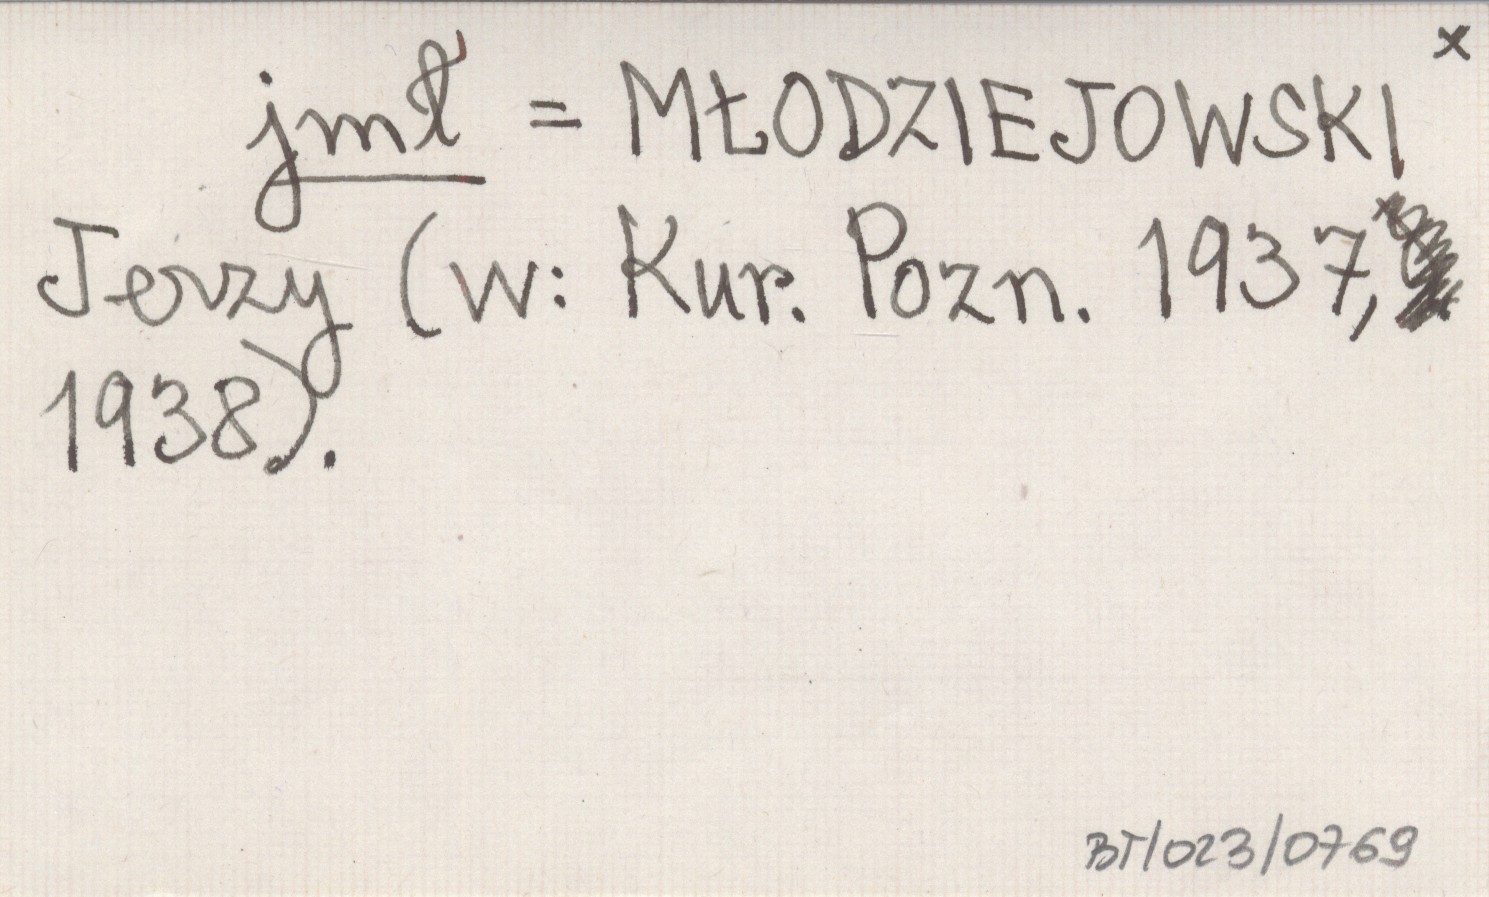 x
jmł = MŁODZIEJOWSKI
Jerzy (w: Kur. Pozn. 1937,
1938).
BT/023/0769